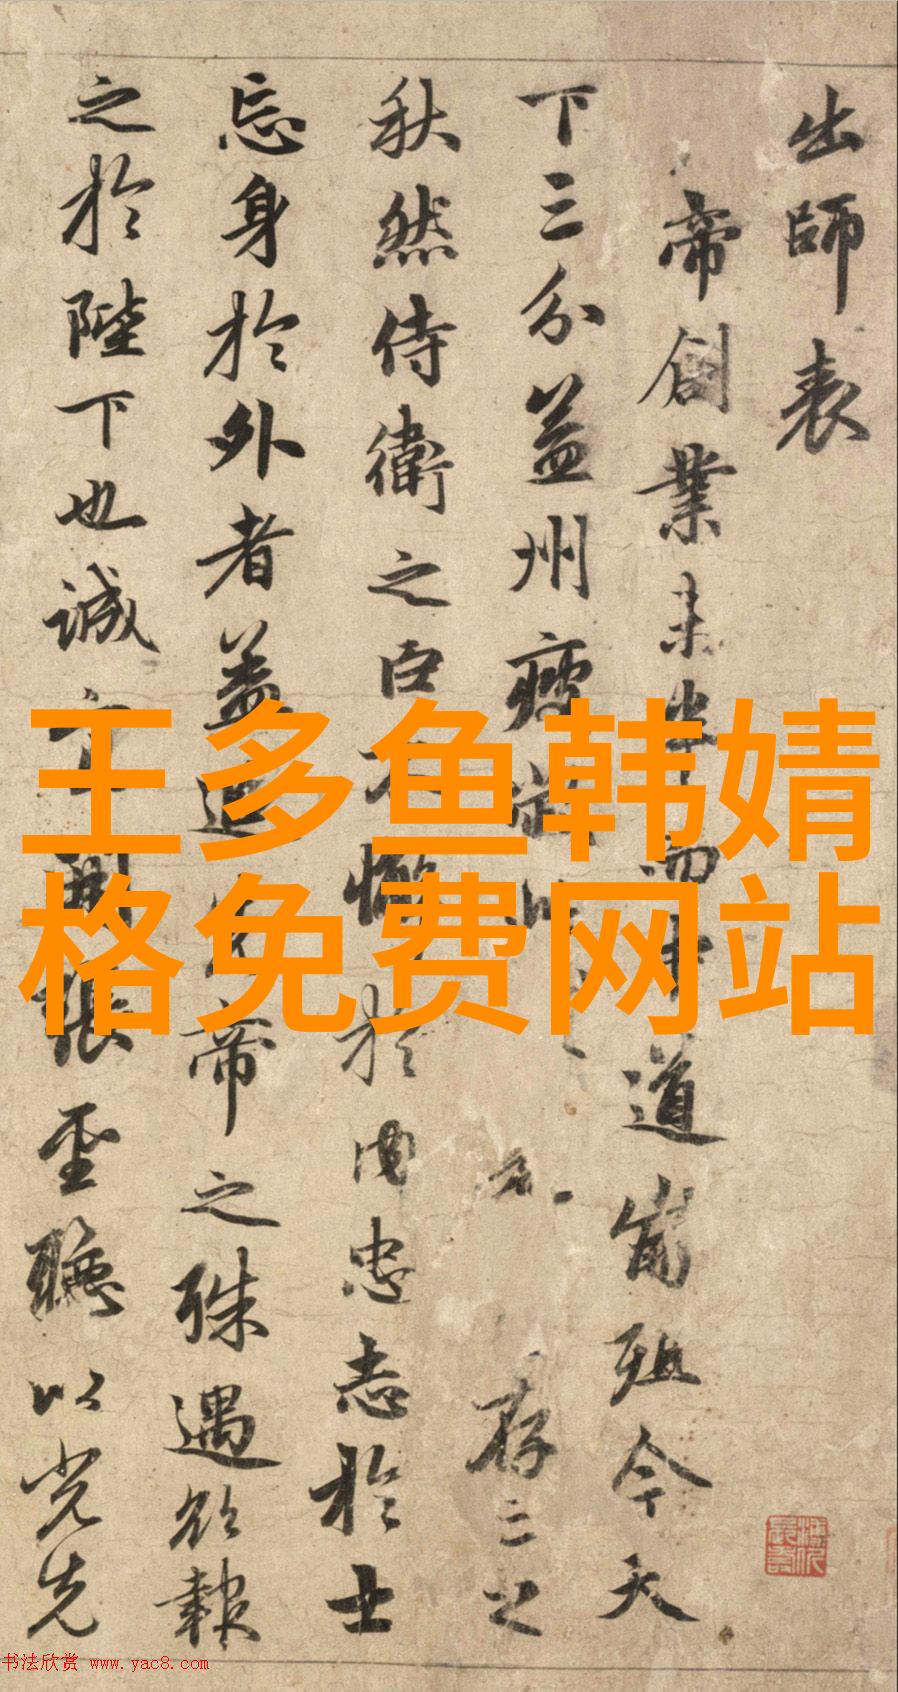 出師表
帝創業未半而中道崩殂今天
下三分益州疲存之
秋然侍衛之臣不懈於内忠志於士
忘身於外者蓋追先帝之殊遇欲報
之於陛下也誠宜開張聖聽以光先
王多鱼韩婧
格免费网站
书法欣赏 www.yac8.com